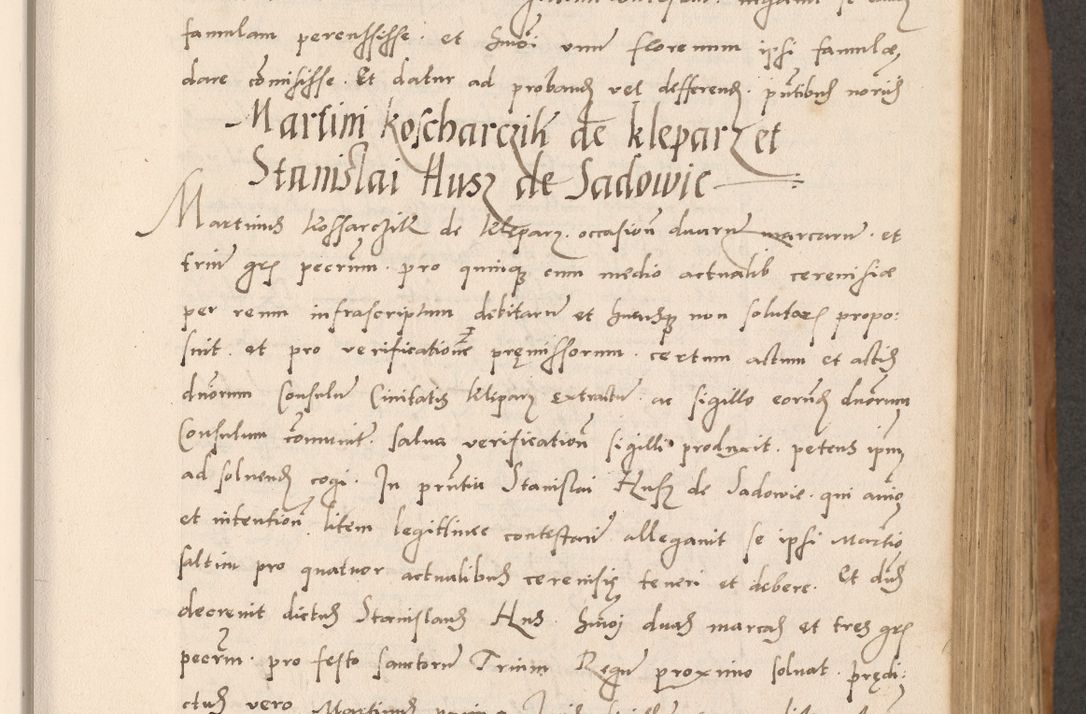 famulam percussisse. et hmoi unum florenum ipsi famulæ
dare comisisse. Et datur ad probandum vel defferendum. pntibus noribus
Martini Koscharczik de Kleparz et
Stanislai Husz de Sadowie
Martinus Kossarczik de Kleparz. occasione duarum marcarum. et
trium grs pecrum. pro quinque cum medio actualib cerevisiæ
per reum infrascriptum debitarum et hucusque non solutars propo:
suit. et pro verificatione premissorum. certum actum et actis
dnorum Consulum Civitatis Kleparz extractum. ac sigillo eorundem dnorum
Consulum comunitum. salva verificatione sigilli produxit. petens ipm
ad solvendum cogi. In pntia Stanislai Husz de Sadowie. qui animo
et intentione litem legittime contestandi allegavit se ipsi Martino
saltim pro quatuor actualibus cerevisię teneri et debere. Et dus
decrevit dictus Stanislaus Hus. hmoi duas marcas et tres grs
pecrum. pro festo sanctorum Trium Regum proximo solvat. prędi:
ctus vero Martinus